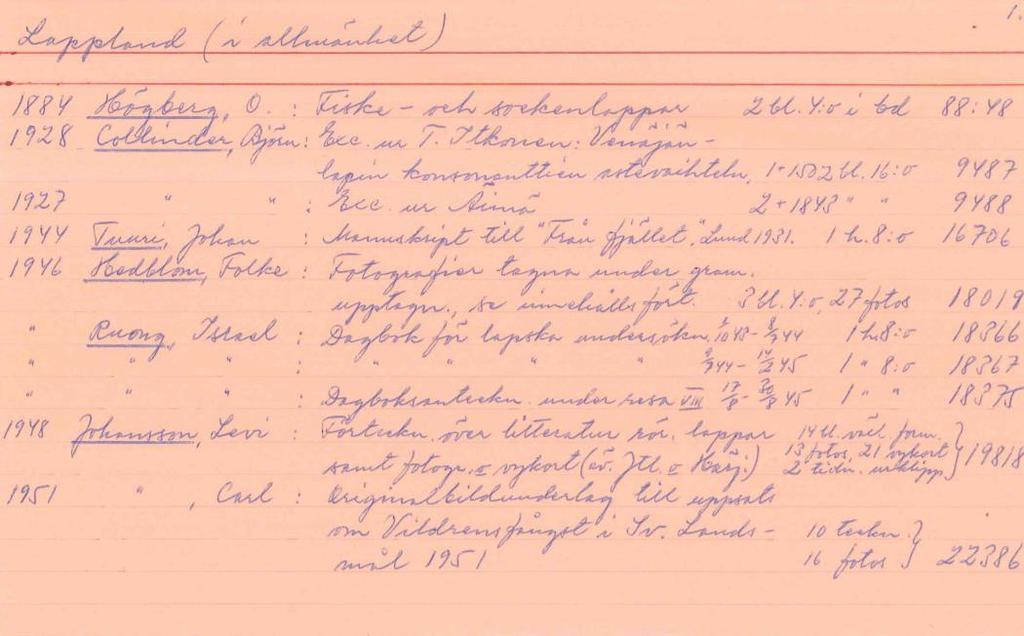 1.
Lappland (i allmänhet)
1884 Högberg, O. : Fiske- och sockenlappar 2 bl. 4:o i bd 88:48
1928 Collinder, Björn: Exc. ur T. Itkonen: Venäjän-
lapin konsonanttien astevaihtelu, 1+1502 bl. 16:o 9487
1927 " " : Exc. ur Äimä 2+1843 " " 9488
1944 Tuuri, Johan : Manuskript till "Från fjället", Lund 1931. 1 h. 8:o 16706
1946 Hedblom, Folke : Fotografier tagna under gram.
upptagn., se innehållsfört. 3 bl. 4:o, 27 fotos 18019
" Ruong, Israel : Dagbok för lapska undersökn. 43- 44 1 h. 8:o 18366
" " " : " " " " 44- 45 1 " 8:o 18367
" " " : Dagboksanteckn. under resa VIII 17/8-30/8 45 1 " " 18375
1948 Johansson, Levi : Förteckn. över litteratur rör. lappar 14 bl. växl. form.
samt fotogr. o vykort (äv. Jtl. o Härj.) 13 fotos, 21 vykort 2 tidn. urklipp 19818
1951 " , Carl : Originalbildunderlag till uppsats
om Vildrensfångst i Sv. Lands- 10 teckn.
mål 1951 16 fotos 22386